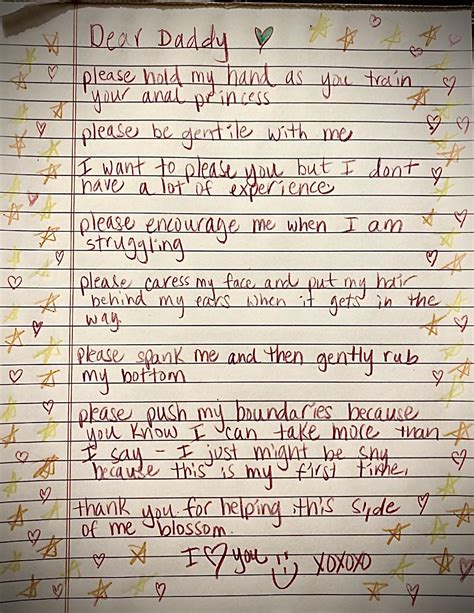 Dear Daddy
please hold my hand as you train
your anal princess
please be gentile with me
I want to please you but I dont
have a lot of experience
please encourage me when I am
struggling
please caress my face and put my hair
behind my ears when it gets in the
way
please spank me and then gently rub
my bottom
please push my boundaries because
you know I can take more than
I say - I just might be shy
because this is my first time.
thank you for helping this side
of me blossom.
I ♡ you :) XOXOXO